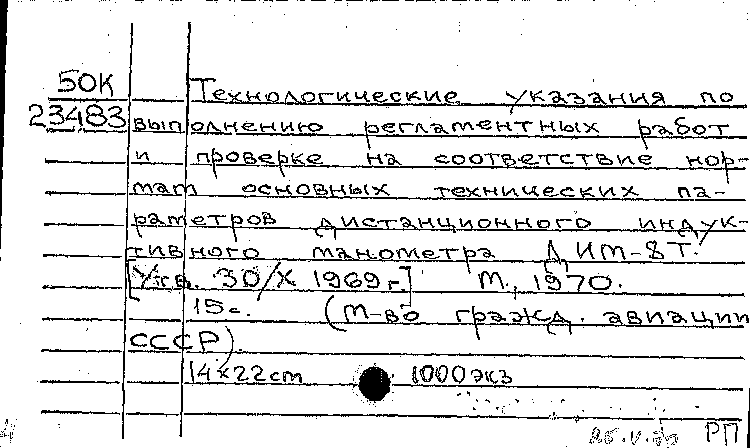 50К Технологические указания по
23483 выполнению регламентных работ
и проверке на соответствие нор-
мам основных технических па-
раметров дистанционного индук-
тивного манометра ДИМ-8Т.
[Утв. 30/X 1969 г.] М., 1970.
15 с. (М-во гражд. авиации
СССР)
14×22 cm 1000 экз
РП